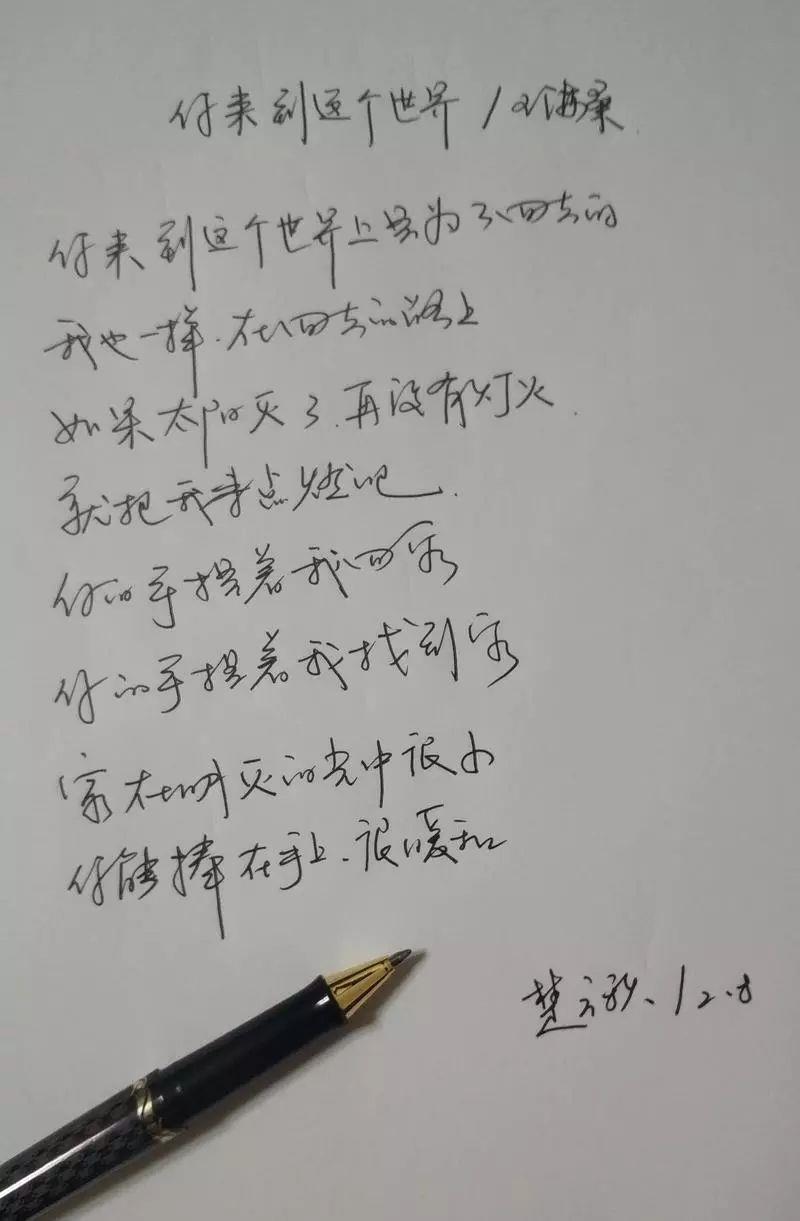 你来到这个世界 / 王海桑
你来到这个世界上是为了回去的
我也一样.在回去的路上
如果太阳灭了.再没有灯火.
就把我来点燃吧.
你的手提着我回家
你的手提着我找到家
家在明灭的光中很小
你能捧在手上.很暖和
楚 12.8